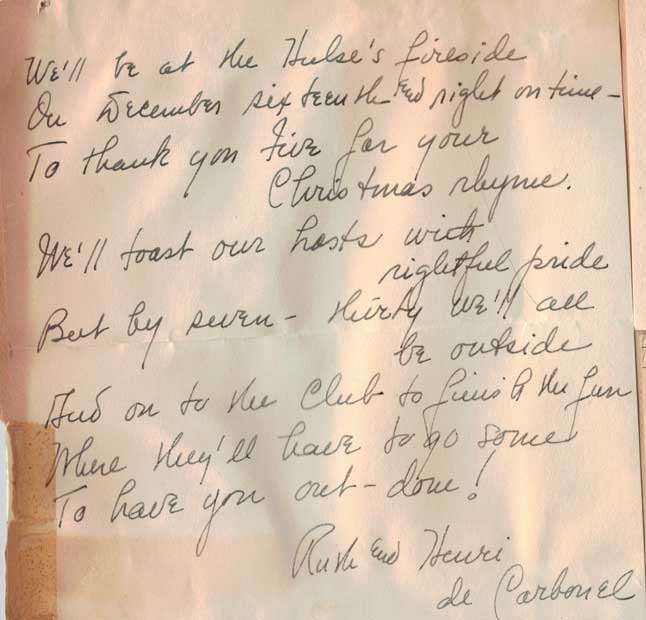 We'll be at the Hulse's fireside
On December sixteenth and right on time -
To thank you Five for your
Christmas rhyme.
We'll toast our hosts with
rightful pride
But by seven - thirty we'll all
be outside
And on to the Club to finish the fun
Where they'll have to go some
To have you out - done!
Ruth and Henri
de Carbonel